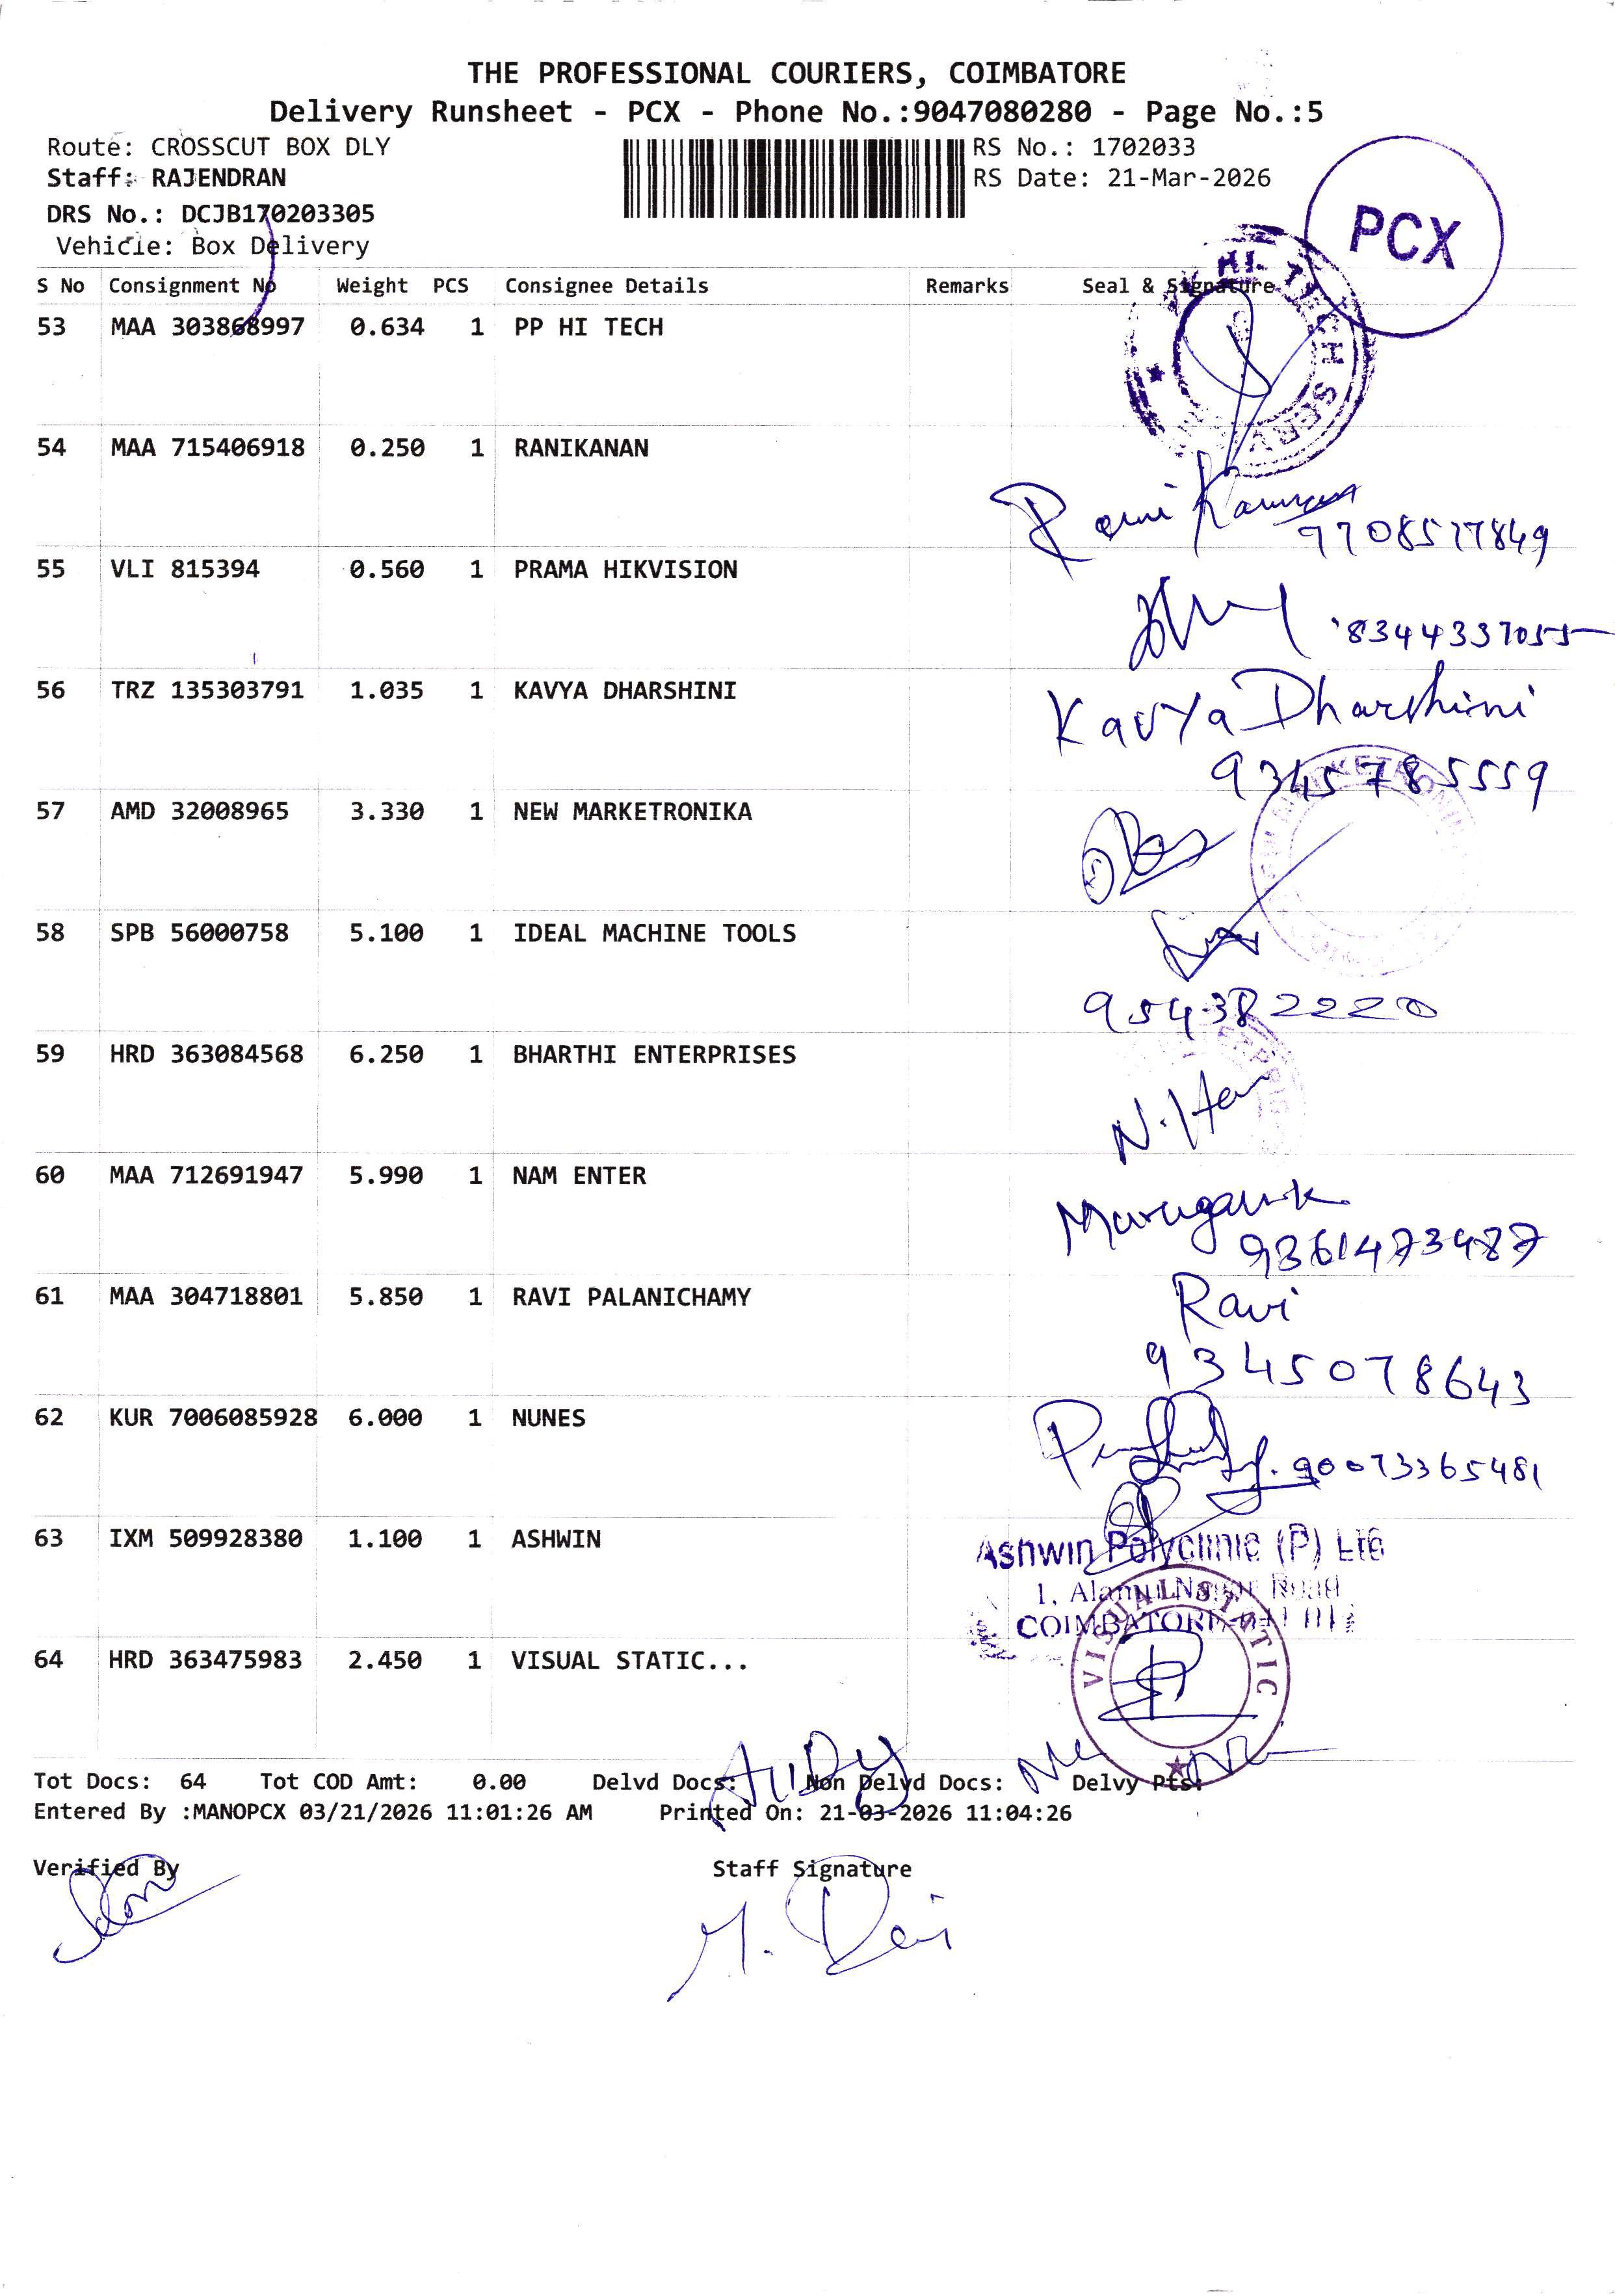 THE PROFESSIONAL COURIERS, COIMBATORE
Delivery Runsheet - PCX - Phone No.:9047080280 - Page No.:5
Route: CROSSCUT BOX DLY
RS No.: 1702033
Staff: RAJENDRAN
RS Date: 21-Mar-2026
DRS No.: DCJB170203305
PCX
Vehicle: Box Delivery
S No Consignment No Weight PCS Consignee Details Remarks Seal & Signature
53 MAA 303868997 0.634 1 PP HI TECH
HI TECH SERV
54 MAA 715406918 0.250 1 RANIKANAN
Rani Kannan
9708577849
55 VLI 815394 0.560 1 PRAMA HIKVISION
8344337055
56 TRZ 135303791 1.035 1 KAVYA DHARSHINI
Kavya Dharshini
9345785559
57 AMD 32008965 3.330 1 NEW MARKETRONIKA
58 SPB 56000758 5.100 1 IDEAL MACHINE TOOLS
9543822220
59 HRD 363084568 6.250 1 BHARTHI ENTERPRISES
60 MAA 712691947 5.990 1 NAM ENTER
9361473487
61 MAA 304718801 5.850 1 RAVI PALANICHAMY
Ravi
9345078643
62 KUR 7006085928 6.000 1 NUNES
90073365481
63 IXM 509928380 1.100 1 ASHWIN
Ashwin Polyclinic (P) Ltd
1, Road
COIMBATORE
64 HRD 363475983 2.450 1 VISUAL STATIC...
VISUAL STATIC
Tot Docs: 64 Tot COD Amt: 0.00 Delvd Docs: Non Delvd Docs: Delvy Pts:
Entered By :MANOPCX 03/21/2026 11:01:26 AM Printed On: 21-03-2026 11:04:26
Verified By Staff Signature